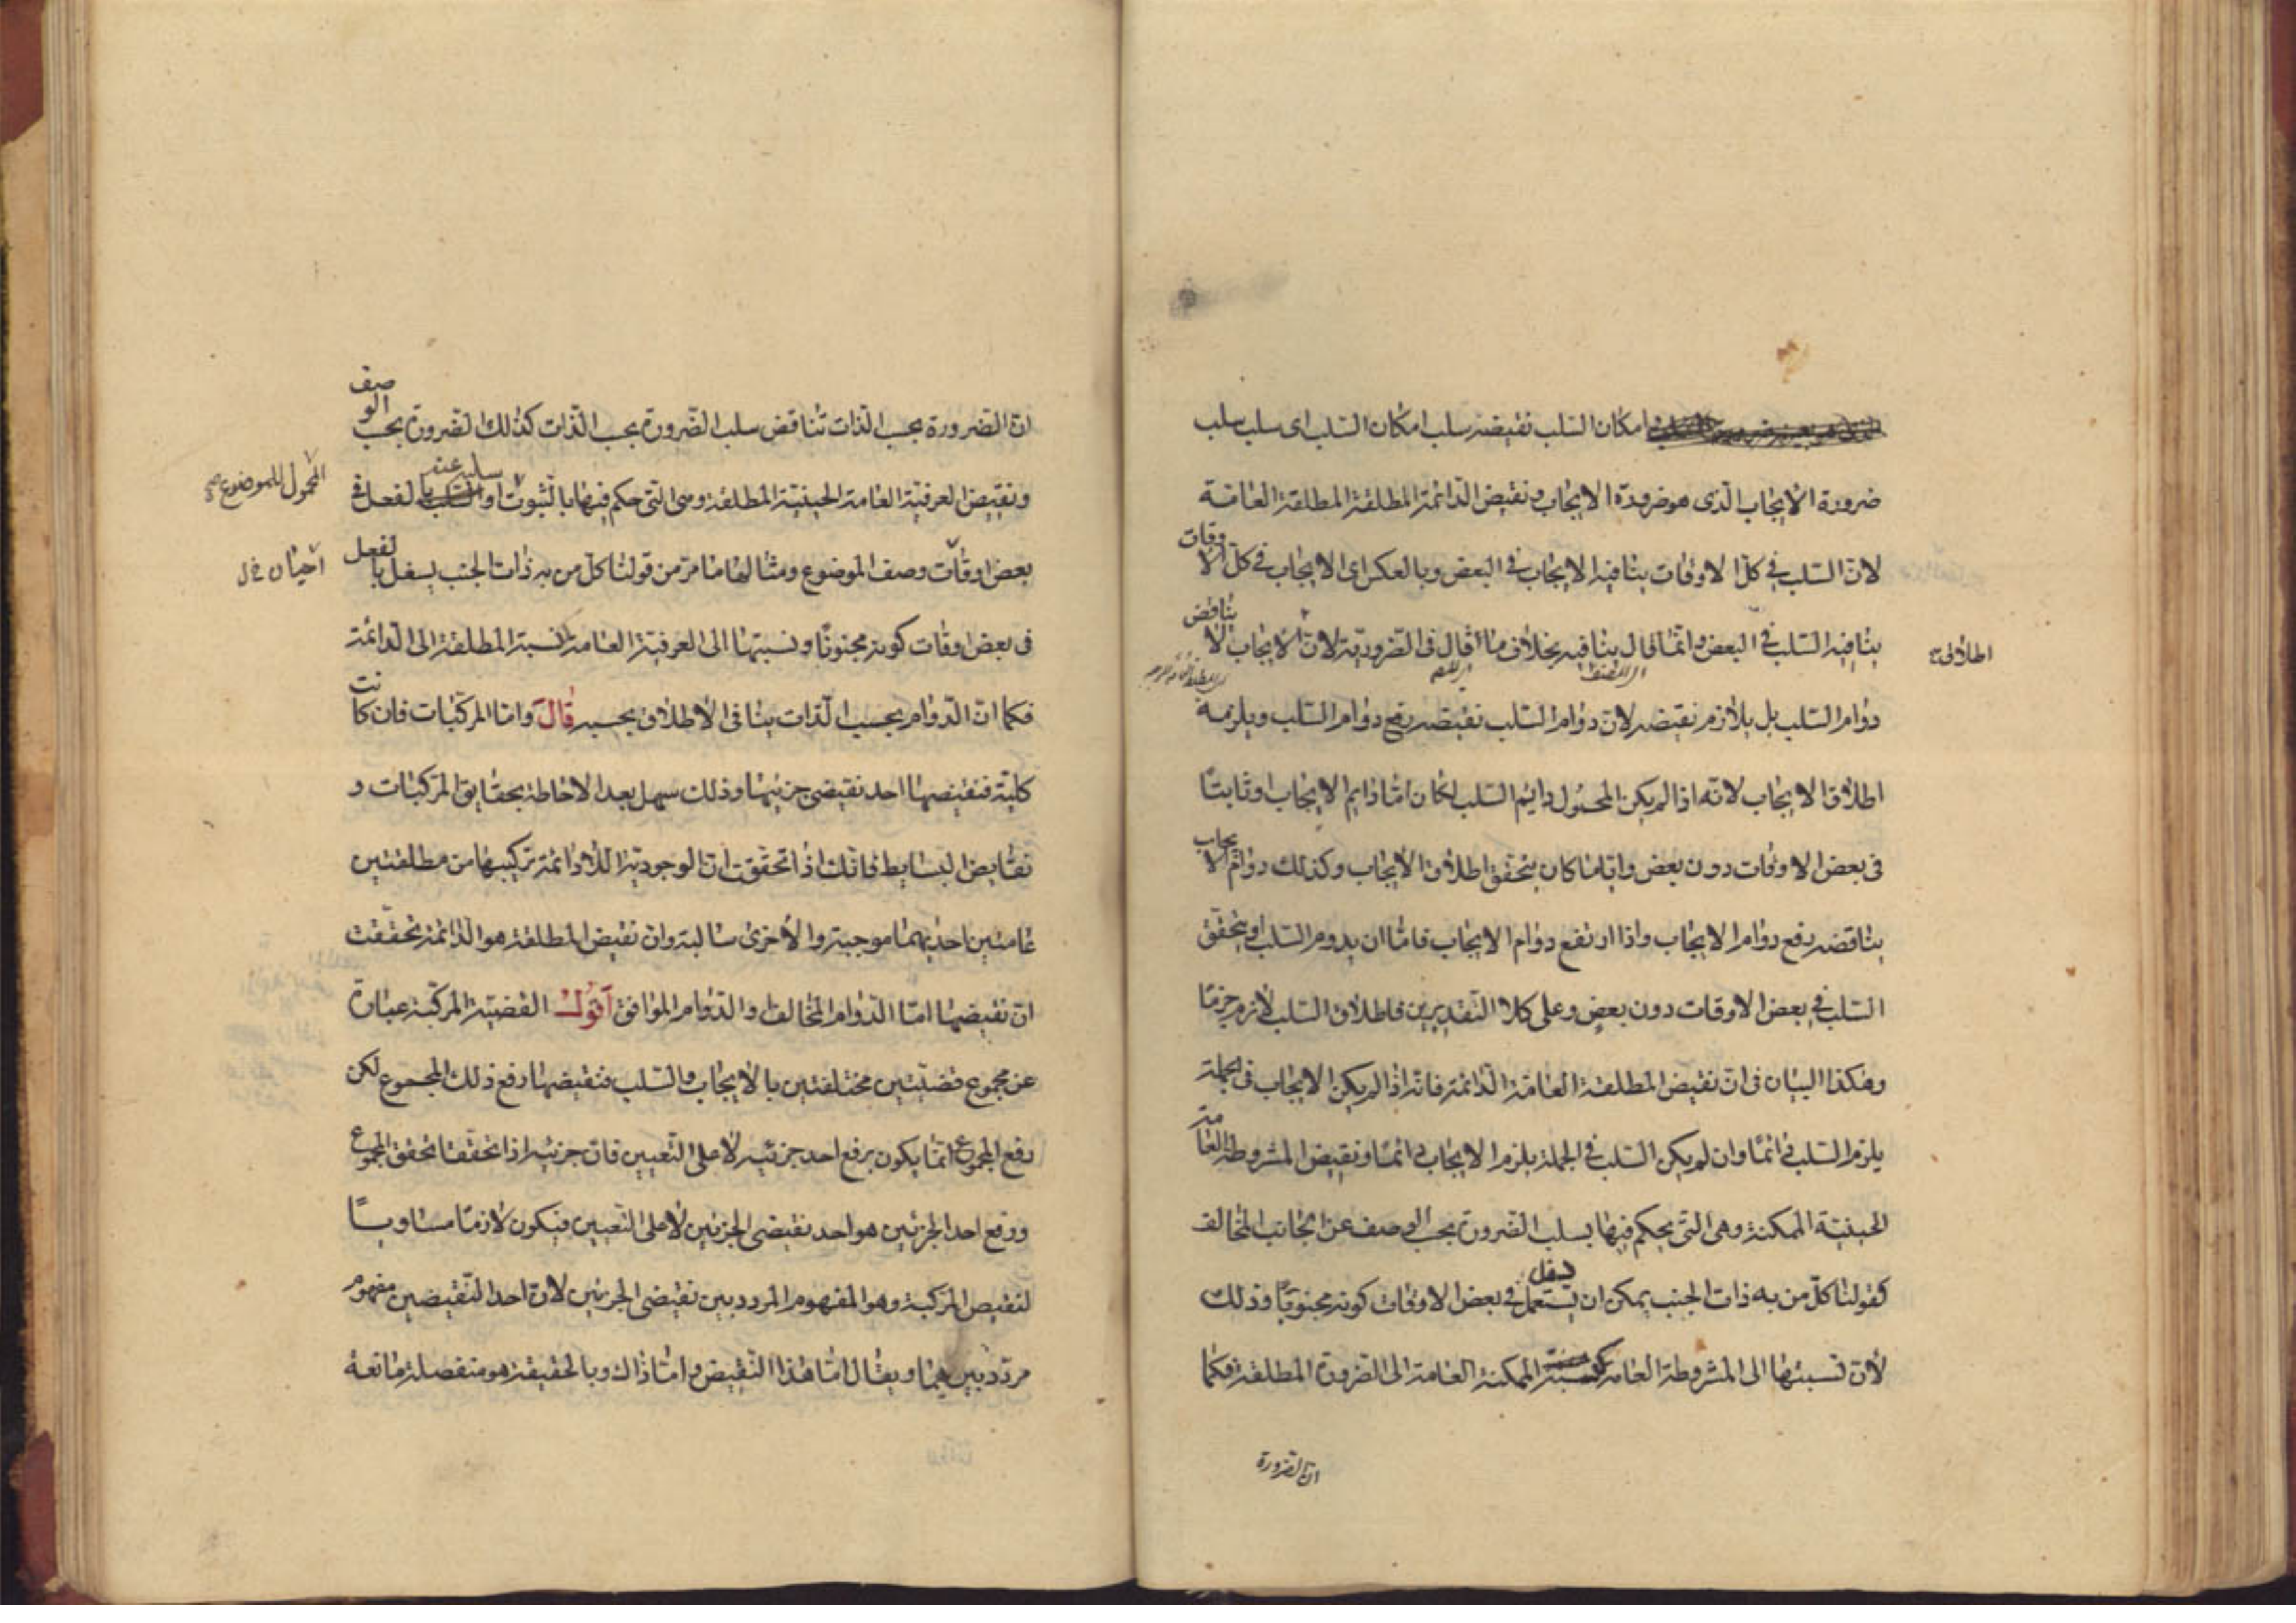 امكان السلب نقيضه سلب امكان السلب اى سلب سلب
ضرورة الايجاب الذى هو ضرورة الايجاب ونقيض الدائمة المطلقة المطلقة العامة
لان السلب فى كل الاوقات ينافيه الايجاب فى البعض وبالعكس اى الايجاب فى كل الاوقات
ينافيه السلب فى البعض وانما قال ينافيه بخلاف ما قال فى الضرورية لان الايجاب لا يناقض
اطلاق
دوام السلب بل يلازم نقيضه لان دوام السلب نقيضه رفع دوام السلب ويلزمه
اطلاق الايجاب لانه اذا لم يكن المحمول دايم السلب لكان اما دايم الايجاب او ثابتا
فى بعض الاوقات دون بعض واياما كان يتحقق اطلاق الايجاب وكذلك دوام الايجاب
يناقضه رفع دوام الايجاب واذا ارتفع دوام الايجاب فاما ان يدوم السلب او يتحقق
السلب فى بعض الاوقات دون بعض وعلى كلا التقديرين فاطلاق السلب لازم جزما
وهكذا البيان فى ان نقيض المطلقة العامة الدائمة فانه اذا لم يكن الايجاب فى الجملة
يلزم السلب دائما وان لم يكن السلب فى الجملة يلزم الايجاب دائما ونقيض المشروطة العامة
الحينية الممكنة وهى التى يحكم فيها بسلب الضرورة بحسب الوصف عن الجانب المخالف
كقولنا كل من به ذات الجنب يمكن ان يسعل فى بعض الاوقات كونه مجنوبا وذلك
لان نسبتها الى المشروطة العامة كنسبة الممكنة العامة الى الضرورة المطلقة فكما
ان الضرورة
ان الضرورة بحسب الذات تناقض سلب الضرورة بحسب الذات كذلك الضرورة بحسب الوصف
ونقيض العرفية العامة الحينية المطلقة وهى التى حكم فيها بالثبوت او سلبه عنه بالفعل فى
المحمول للموضوع صح
بعض اوقات وصف الموضوع ومثالها ما مر من قولنا كل من به ذات الجنب يسعل بالفعل
احيان
فى بعض اوقات كونه مجنوبا ونسبتها الى العرفية العامة نسبة المطلقة الى الدائمة
فكما ان الدوام بحسب الذات ينافى الاطلاق بحسبه قال واما المركبات فان كانت
كلية فنقيضها احد نقيضى جزئيها وذلك سهل بعد الاحاطة بحقايق المركبات و
نقايض البسايط فانك اذا تحققت ان الوجودية اللادائمة تركيبها من مطلقتين
عامتين احديهما موجبة والاخرى سالبة وان نقيض المطلقة هو الدائمة تحققت
ان نقيضها اما الدوام المخالف او الدوام الموافق اقول القضية المركبة عبارة
عن مجموع قضيتين مختلفتين بالايجاب والسلب فنقيضها رفع ذلك المجموع لكن
رفع المجموع انما يكون برفع احد جزئيه لا على التعيين فان جزئيه اذا تحققا تحقق المجموع
ورفع احد الجزئين هو احد نقيضى الجزئين لا على التعيين فيكون لازما مساويا
لنقيض المركبة وهو المفهوم المردد بين نقيضى الجزئين لان احد النقيضين مفهوم
مردد بينهما ويقال اما هذا النقيض واما ذاك وبالحقيقة هو منفصلة مانعة